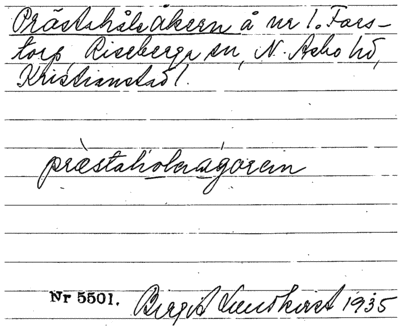 Prästahålsåkern å nr 1. Fars-
torp, Riseberga sn, N. Åsbo hd,
Kristianstad l.
præstaholsagoren
Nr 5501. Birgit Lundkvist 1935